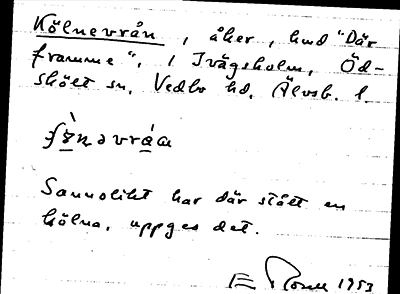 Kölnevrån, åker, hmd "Där
framme", i Ivägsholm, Öd-
skölt sn. Vedbo hd. Älvsb. l.
Sannolikt har där stått en
kölna, uppges det.
1953